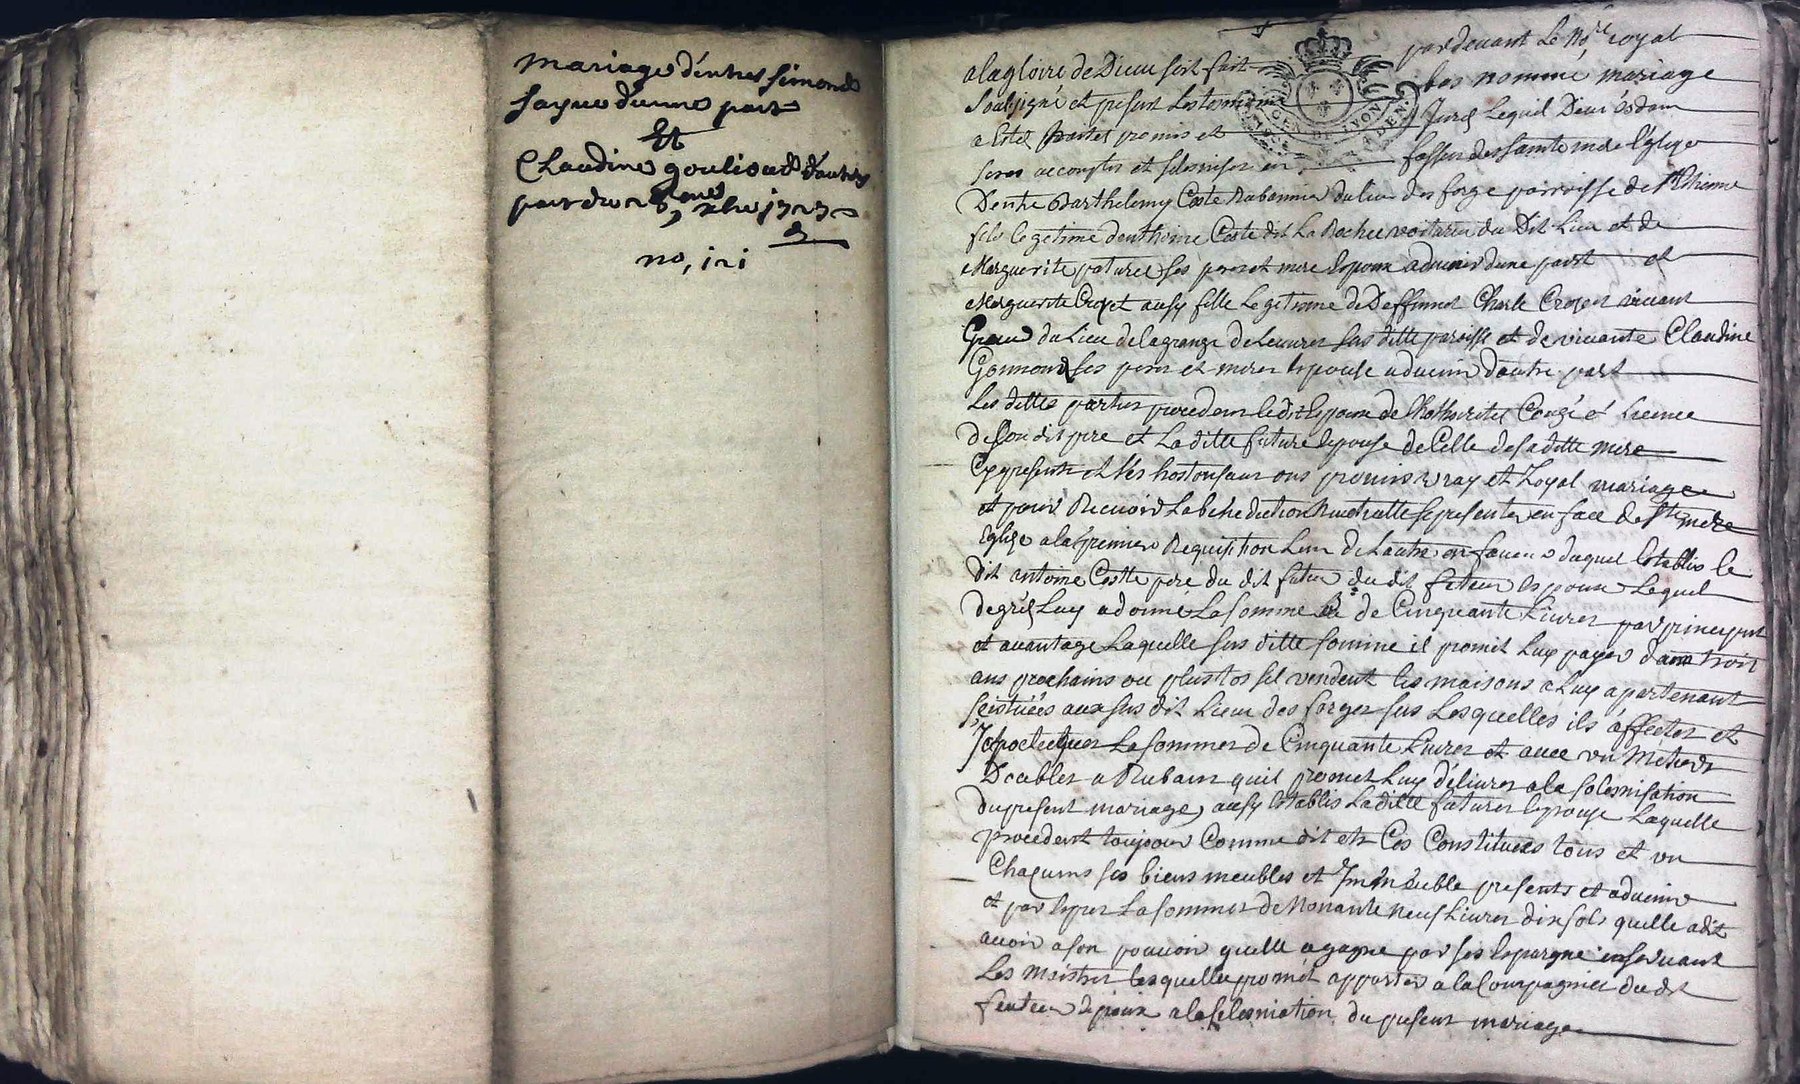 mariage d'entres simond
fayue d'une part
Et
Claudine goulioud d'autres
part du 1727
no, 121
par devant Le No.re royal
a la gloire de Dieu soit fait bas nommé mariage
Soubsigné et present Les temoins Juré Lequel Dieu
a Estés traittés promis et fassur de sainte mere L'églize
seres accomplis et solemniser en
GEN DE LYON
D'entre Barthelemy Coste Rubannier du lieu des forge parroisse de St Etienne
fils legetime d'enthoine Coste dit La Roche voiturier du Dit Lieu et de
Marguerite ses peres et mere Espoux aduenir dune part et
Marguerite Croyet aussy fille Legetime de Deffunct Charle Croyet vivant
Granger du Lieu de la grange de Leuures sus ditte paroisse et de vivante Claudine
Gonnond ses peres et meres Espouse aduenir d'autre part
Les dittes parties procedent ledit Espoux de l'hotthorités Congé et Licence
de son dit pere et La ditte future Espouse de Celle de sa ditte mere
Cy presente et Les hostorisant ons promis vray et Loyal mariage
et pour Recevoir La benediction Nuctialle se presenter en face de Ste mere
Eglize a la premiere Requisition Lun de Lautre en faveur duquel Establis le
Dit antoine Coste pere du dit futur du dit futeur espoux Lequel
de gréz Luy a donné La somme de Cinquante Livres par principut
et avantage Laquelle sus ditte somme il promet Luy payer dans trois
ans prochains ou plustos sil vendent les maisons a Luy apartenant
scistuées aux sus dit Lieux des forges sus Lesquelles ils affectes et
Jpotecques La sommes de Cinquante Livres et avec un Metiers
Doubles a Rubans quil promet Luy délivrer a la solesnisation
du present mariage, aussy Establis La ditte futures Espouse Laquelle
procedent toujour Comme dit est Ces Constituées tous et un
Chaquns ses biens meubles et Jmmeuble presents et aduenir
et par Expres La sommes de Nonante neuf Livres dix sols quelle a dit
avoir a son pouvoir quelle a gagné par ses Espargne en servant
Les Maistres Lesquelle promet apporter a la Compagnies du dit
feuteur Epoux a la Solesniation du present mariage